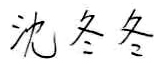 沈冬冬